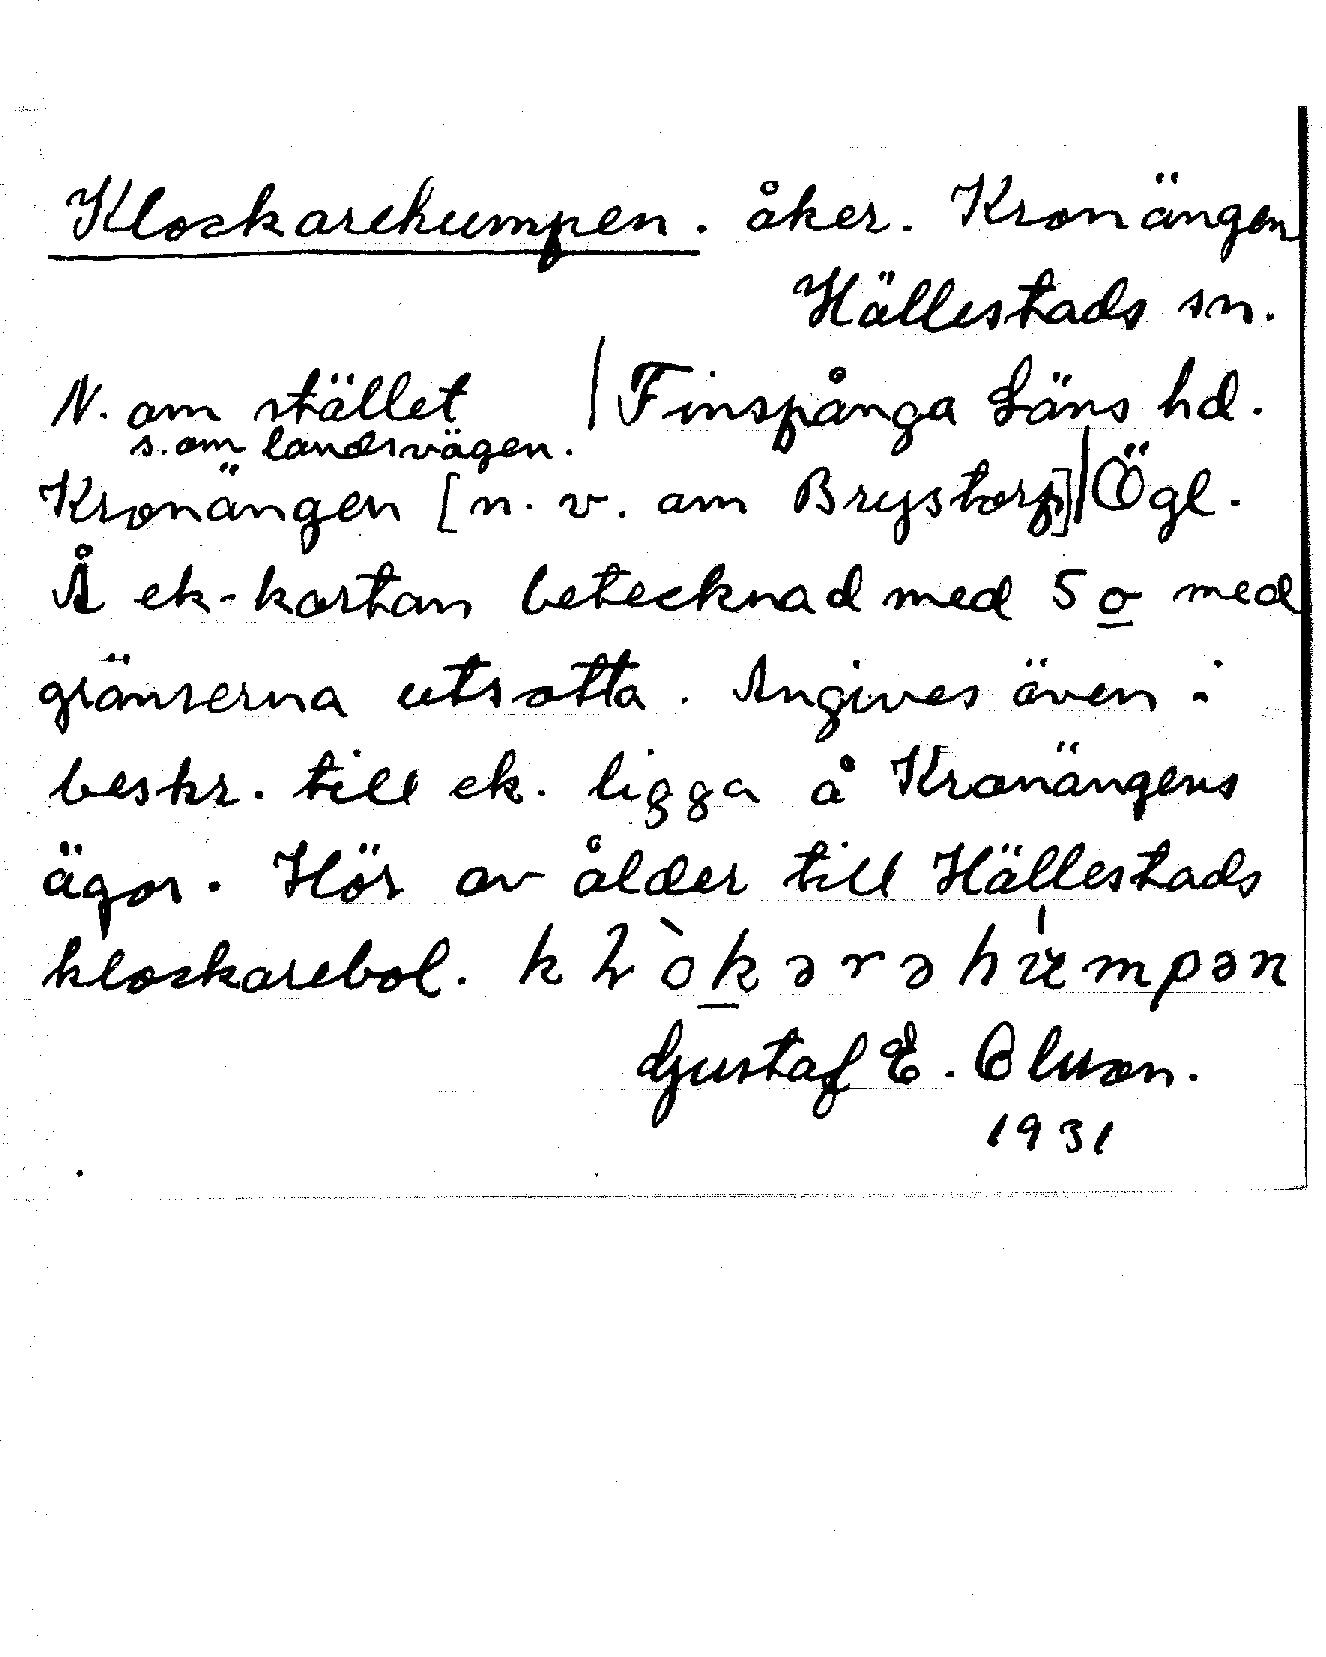 Klockarehumpen. åker. Kronängen
Hällestads sn.
N. om stället | Finspånga Läns hd.
s. om landsvägen.
Kronängen [n. v. om Brystorp] | Ögl.
Å ek-kartan betecknad med 5 o med
gränserna utsatta. Angives även i
beskr. till ek. ligga å Kronängens
ägor. Hör av ålder till Hällestads
klockarebol.
Gustaf E. Olsson.
1931